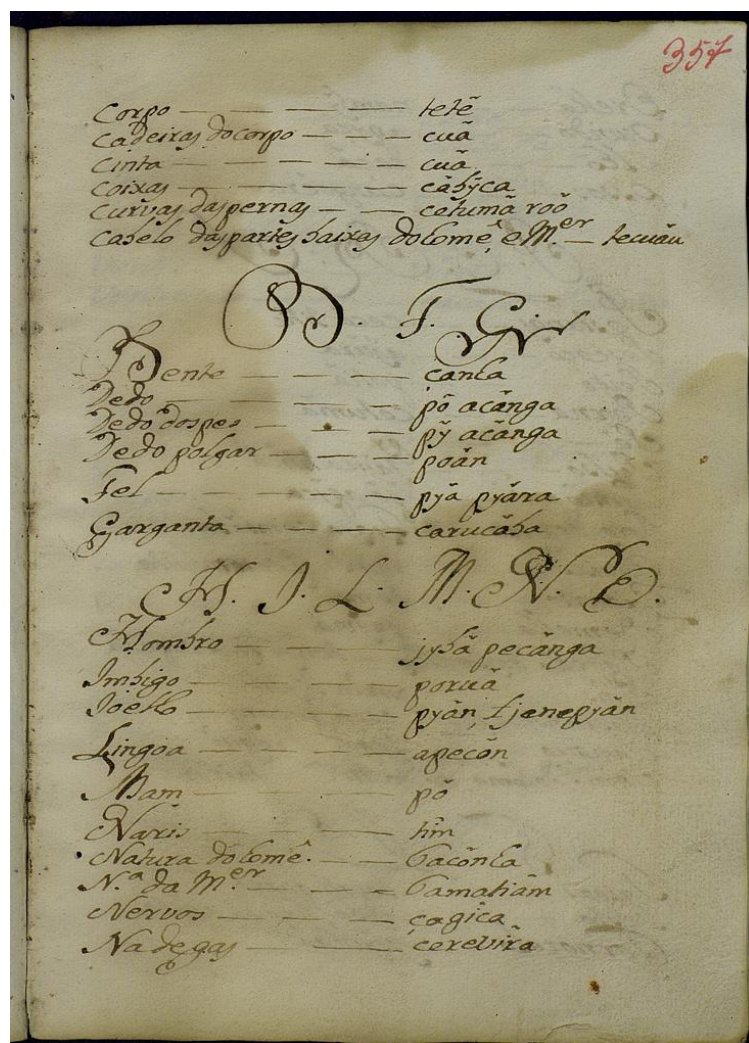 357
Corpo — — — — tetẽ
Cadeiras do corpo — — — cuã
Cinta — — — — cuã
Coixas — — — — cãbỹca
Curvas das pernas — — cetumã roõ
Cabelo das partes baixas do homẽ, e M.er — tecuãu
D. F. G.
Dente — — — canha
Dedo — — — — põ acãnga
Dedo dos pes — — — pỹ acãnga
Dedo polgar — — — poãn
Fel — — — — pyã pyãra
Garganta — — — — carucãba
H. J. L. M. N. O.
Hombro — — — jybã pecãnga
Imbigo — — — — poruã
Joelho — — — — pyãn, t jenepyãn
Lingoa — — — — apecõn
Mam — — — — põ
Naris — — — — tim
Natura do homẽ. — — hacõnha
N.a da M.er — — — hamatiãm
Nervos — — — — çagica
Nadegas — — — cerebirã